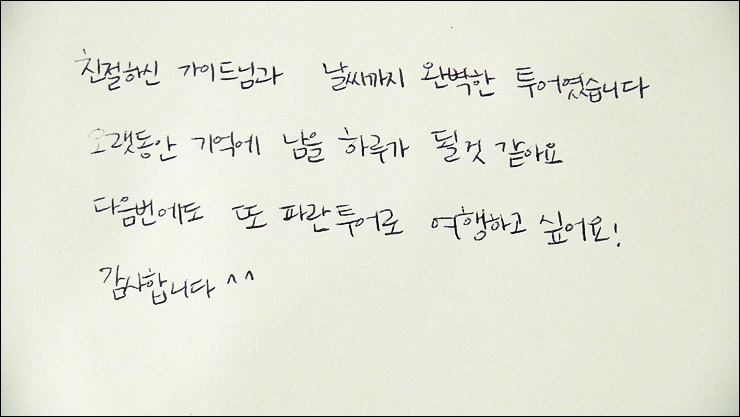 친절하신 가이드님과 날씨까지 완벽한 투어였습니다
오랫동안 기억에 남을 하루가 될것 같아요
다음번에도 또 파란투어로 여행하고 싶어요!
감사합니다 ^^